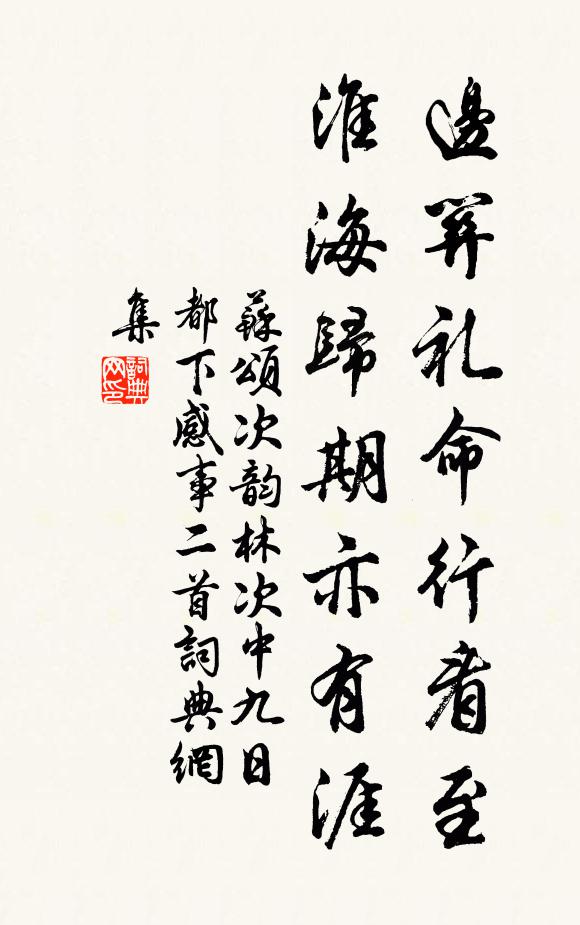 邊關礼命行看至
淮海歸期亦有涯
蘇頌次韵林次中九日
都下感事二首詞典網
集
詞典网印